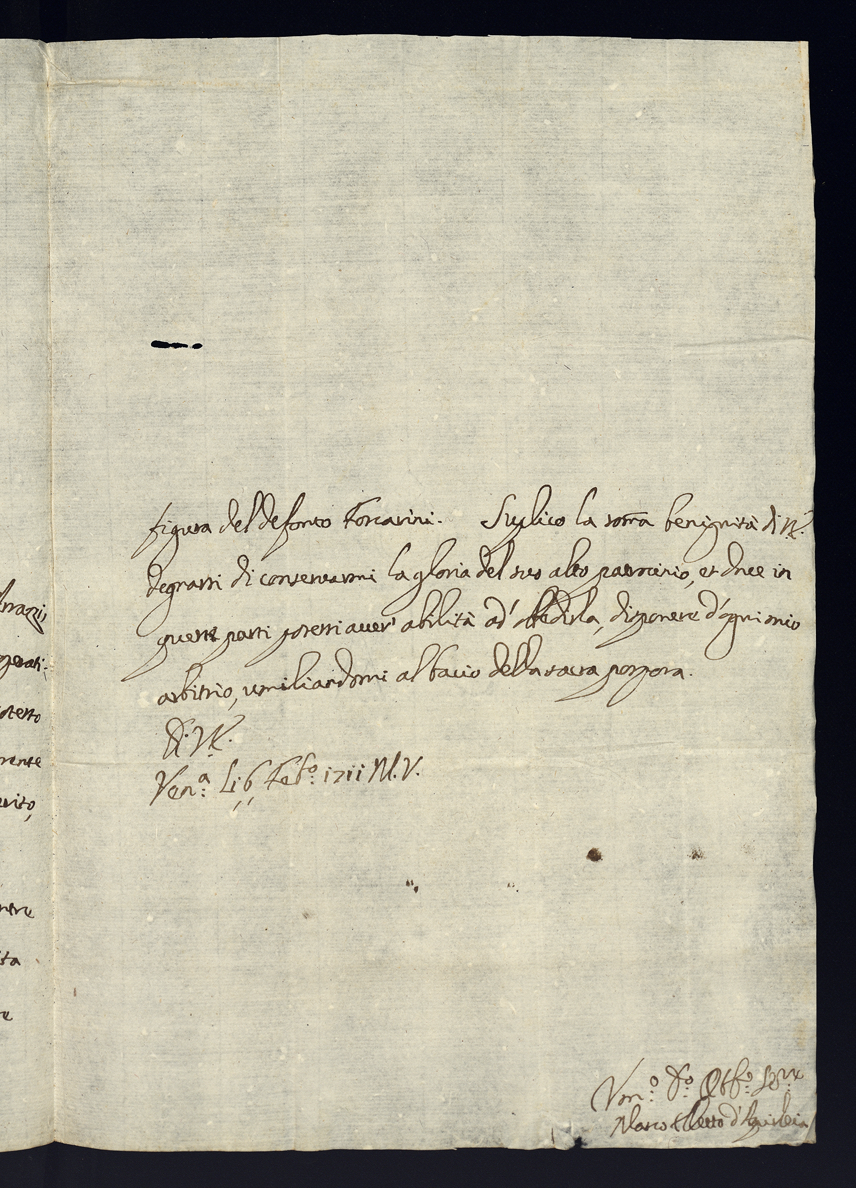 figura del defonto Foscarini. Suplico la som̃a benignità di V.E.
degnarsi di conservarmi la gloria del suo alto patrocinio, et dove in
queste parti potessi aver' abilità ad' obedirla, disponere d'ogni mio
arbitrio, umiliandomi al bacio della sacra porpora.
D. V.E.
Ven.ª Li 6 Feb.º 1711 M.V.
Vm.º D.º Obb.º Ser.
Marco eletto d'Aquileia